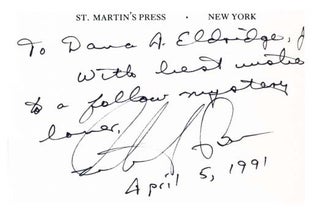 ST. MARTIN'S PRESS · NEW YORK
To Dana A. Eldridge,
With best wishes
to a fellow mystery
lover.
April 5, 1991